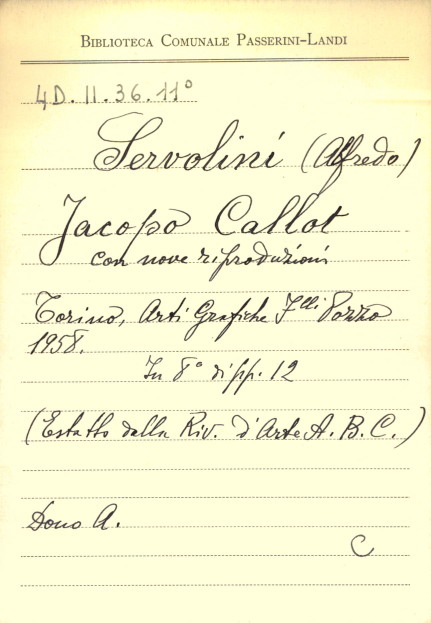 BIBLIOTECA COMUNALE PASSERINI-LANDI
4D. II. 36. 11°
Servolini (Alfredo)
Jacopo Callot
con nove riproduzioni
Torino, Arti Grafiche F.lli Pozzo
1958.
In 8° di pp. 12
(Estatto dalla Riv. d'Arte A. B. C.)
Dono A.
C